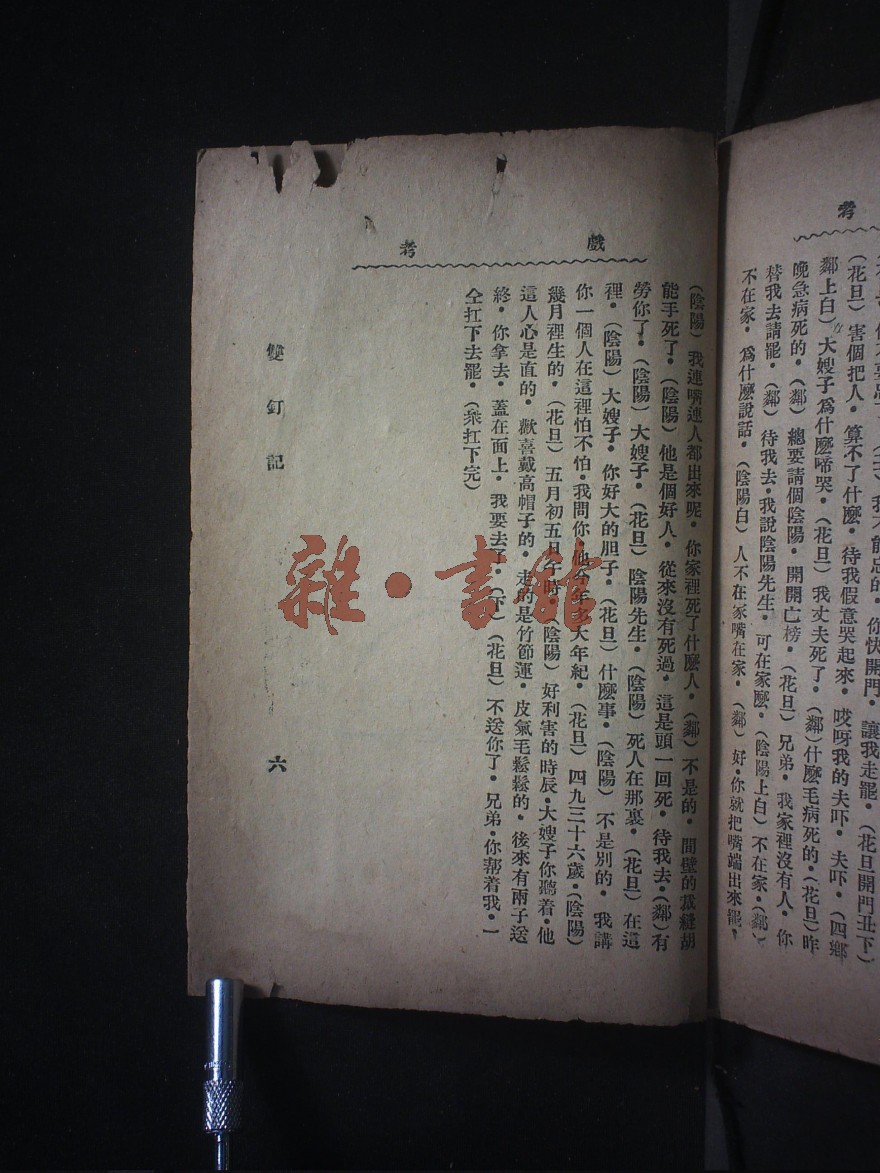 考
(花旦)害個把人•算不了什麽•待我假意哭起來•哎呀我的夫吓•夫吓•(四鄉
鄰上白)大嫂子爲什麽啼哭•(花旦)我丈夫死了•(鄰)什麽毛病死的•(花旦)昨
晚急病死的•(鄰)總要請個陰陽•開開亡榜•(花旦)兄弟•我家裡沒有人•你
替我去請罷•(鄰)待我去•我說陰陽先生•可在家麽•(陰陽上白)不在家•(鄰)
不在家•爲什麽說話•(陰陽白)人不在家嘴在家•(鄰)好•你就把嘴端出來罷•
戲考
(陰陽)我連嘴連人都出來呢•你家裡死了什麽人•(鄰)不是的•間壁的裁縫胡
能手死了•(陰陽)他是個好人•從來沒有死過•這是頭一回死•待我去•(鄰)有
勞你了•(陰陽)大嫂子•(花旦)陰陽先生•(陰陽)死人在那裏•(花旦)在這
裡•(陰陽)大嫂子•你好大的胆子•(花旦)什麽事•(陰陽)不是別的•我講
你一個人在這裡怕不怕•我問你•他今年多大年紀•(花旦)四九三十六歲•(陰陽)
幾月裡生的•(花旦)五月初五日午時•(陰陽)好利害的時辰•大嫂子你聽着•他
這人心是直的•歡喜戴高帽子的•走的是竹節運•皮氣毛鬆鬆的•後來有兩子送
終•你拿去•蓋在面上•我要去了•(下)(花旦)不送你了•兄弟•你帮着我•一
仝扛下去罷•(衆扛下完)
雙釘記
六
雜•書館